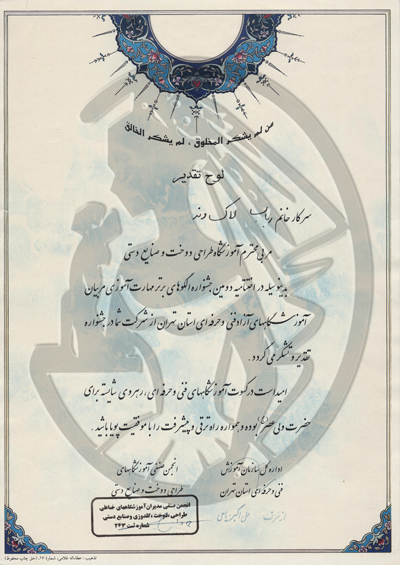 من لم یشکر المخلوق ، لم یشکر الخالق
لوح تقدیر
سرکار خانم رباب لاک درند
مربی محترم آموزشگاه طراحی دوخت و صنایع دستی
بدینوسیله در اختتامیه دومین جشنواره الگوهای برتر مهارت آموزی مربیان
آموزشگاههای آزاد فنی و حرفه ای استان تهران از شرکت شما در جشنواره
تقدیر و تشکر می گردد .
امید است در کسوت آموزشگاههای فنی و حرفه ای ، رهروی شایسته برای
حضرت ولی عصر (عج) بوده و همواره راه ترقی و پیشرفت را با موفقیت پویا باشید .
اداره کل سازمان آموزش
فنی و حرفه ای استان تهران
انجمن صنفی آموزشگاههای
طراحی دوخت و صنایع دستی
انجمن صنفی مدیران آموزشگاههای خیاطی
طراحی دوخت ، گلدوزی و صنایع دستی
شماره ثبت ۲۴۳
تذهیب : عطااله غلامی، شماره ۱۷، (حق چاپ محفوظ)